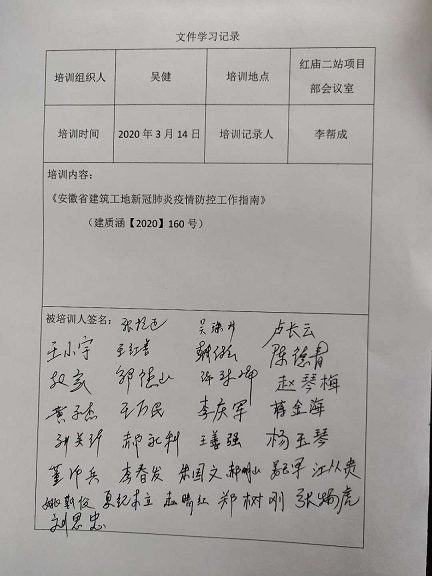 文件学习记录
培训组织人 吴健 培训地点 红庙二站项目
部会议室
培训时间 2020年3月14日 培训记录人 李帮成
培训内容：
《安徽省建筑工地新冠肺炎疫情防控工作指南》
（建质涵【2020】160号）
被培训人签名： 卢长云
王小宇 王红喜 陈德青
赵琴梅
黄子杰 王万民 李庆军 蒋金海
郝永利 王善强 杨玉琴
董印兵 李春发 朱国文 郝明山 江从贵
赵晓红 郑树刚
刘思忠